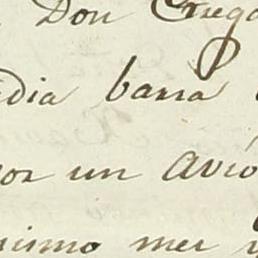 Don Grego
dia barra
por un avio
nismo mer y